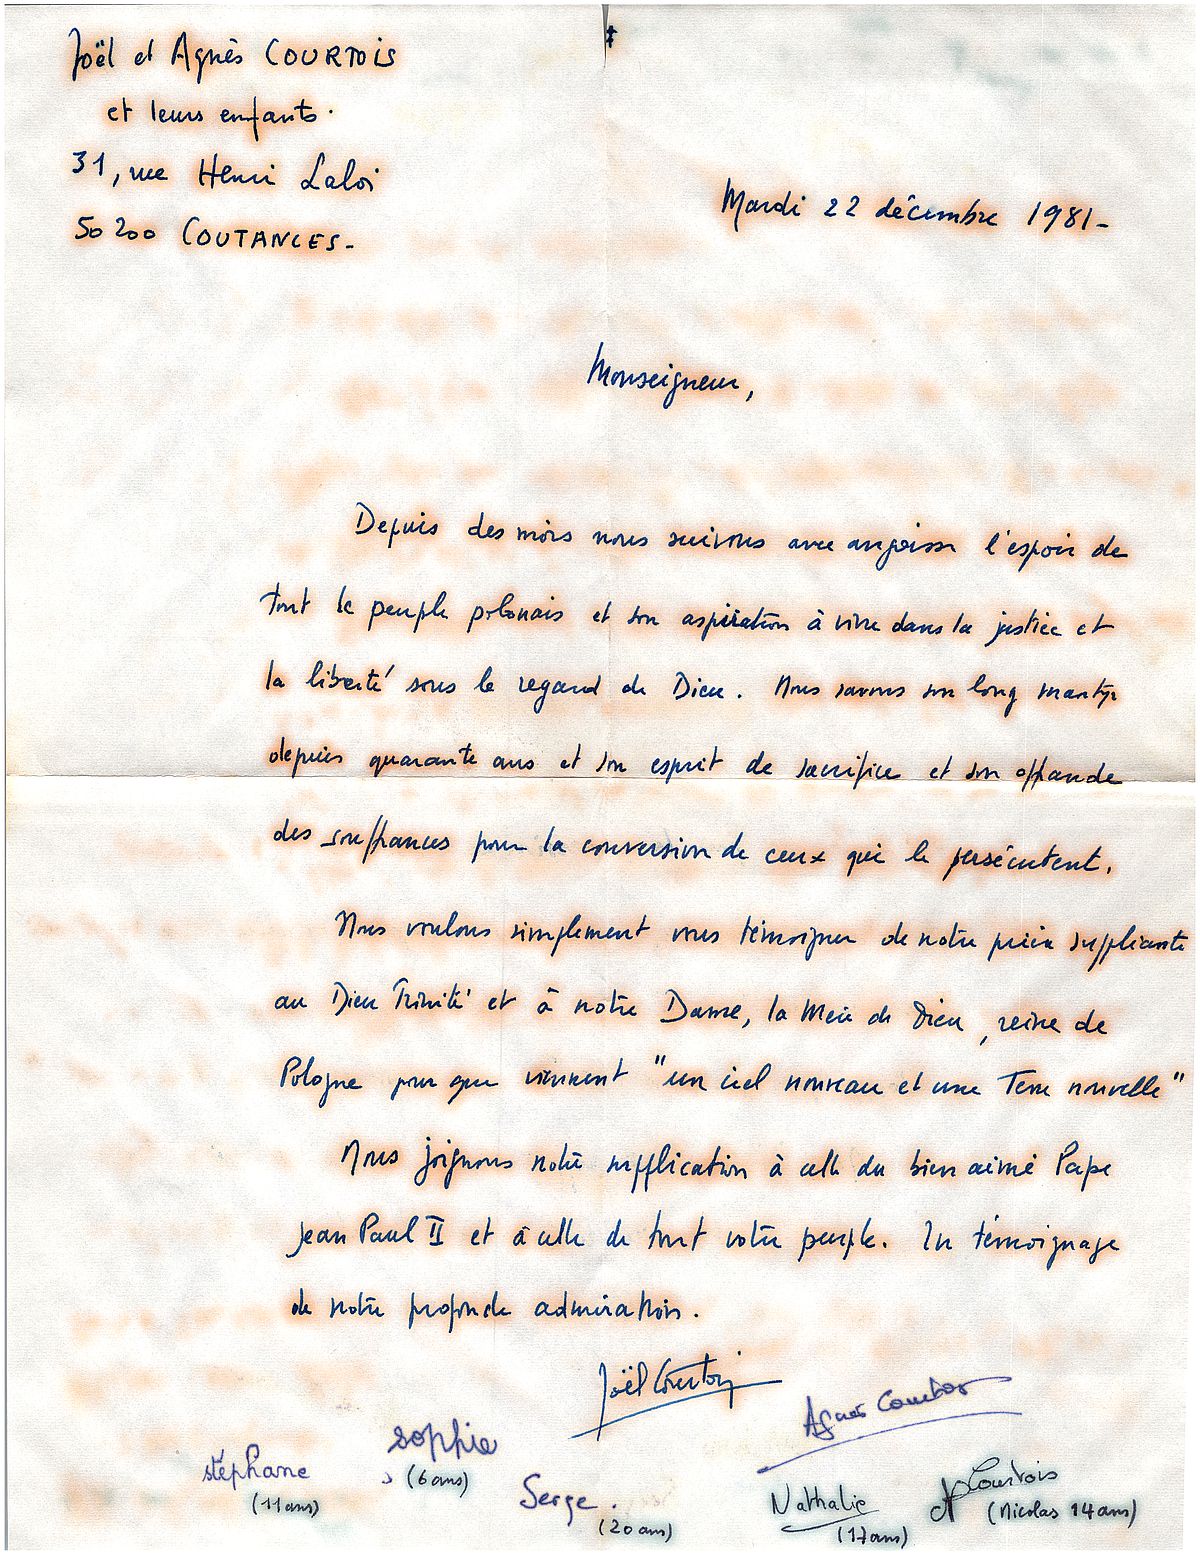 Joël et Agnès COURTOIS
et leurs enfants.
31, rue Henri Laloi
50200 COUTANCES-
Mardi 22 décembre 1981-
Monseigneur,
Depuis des mois nous suivons avec angoisse l'espoir de
tout le peuple polonais et son aspiration à vivre dans la justice et
la liberté sous le regard de Dieu. Nous savons son long martyr
depuis quarante ans et son esprit de sacrifice et son offrande
des souffrances pour la conversion de ceux qui le persécutent.
Nous voulons simplement vous témoigner de notre prière suppliante
au Dieu Trinité et à notre Dame, la Mère de Dieu, reine de
Pologne pour que viennent "un ciel nouveau et une Terre nouvelle"
Nous joignons notre supplication à celle du bien aimé Pape
Jean Paul II et à celle de tout votre peuple. En témoignage
de notre profonde admiration.
Joël Courtois
Agnès Courtois
stéphane
(11 ans)
sophie
(6 ans)
Serge.
(20 ans)
Nathalie
(17 ans)
Courtois
(Nicolas 14 ans)